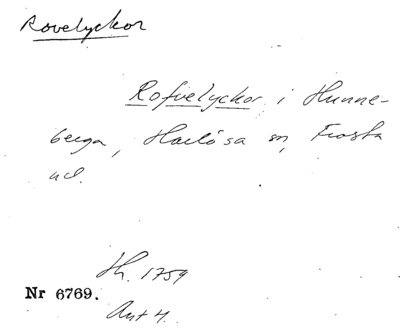 Rovelyckor
Rofvelyckor i Hunne-
berga, Harlösa sn, Frosta
hd.
Lh. 1759
Nr 6769.
Akt 4.